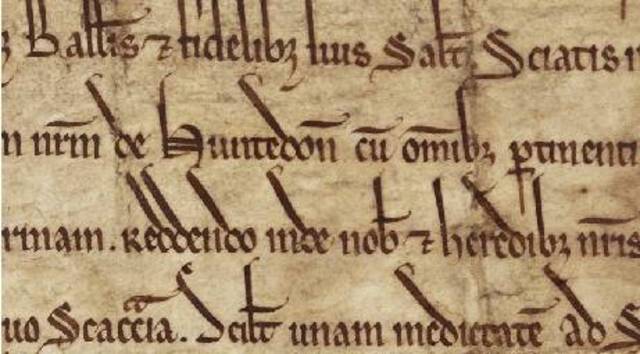 Ballis ⁊ fidelibꝫ suis Salt̄ Sciatis
n nr̄m de Huntedon̄ cū om̄ibꝫ ꝑtinenti
rmam. Reddendo inde nob̄ ⁊ heredibꝫ nr̄is
uo Scacc̄ia. Scilt̄ unam medietatē Ad S